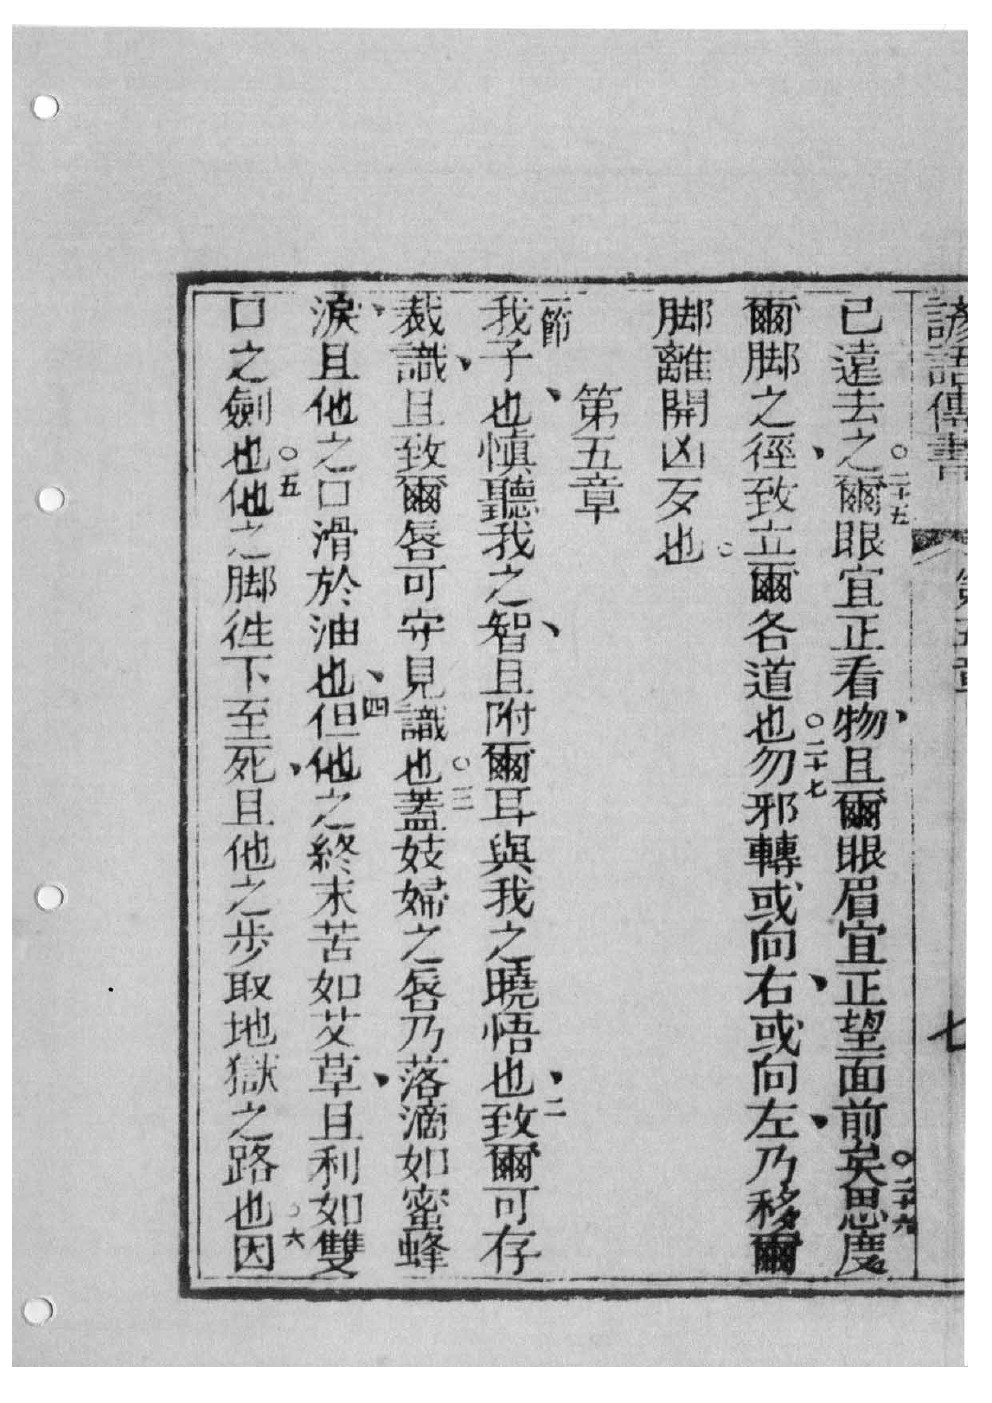 諺語傳書 第五章 七
已遠去之○二十五爾眼宜正看物、且爾眼眉宜正望面前矣○二十六思度
爾脚之徑、致立爾各道也○二十七勿邪轉或向右、或向左、乃移爾
脚離開凶歹也○
第五章
一節我子也、慎聽我之智、且附爾耳與我之曉悟也、二致爾可存
裁識、且致爾唇可守見識也○三蓋妓婦之唇乃落滴如蜜蜂
淚、且他之口滑於油也、四但他之終末苦如艾草、且利如雙
口之劍也○五他之脚徃下至死、且他之步取地獄之路也○六因